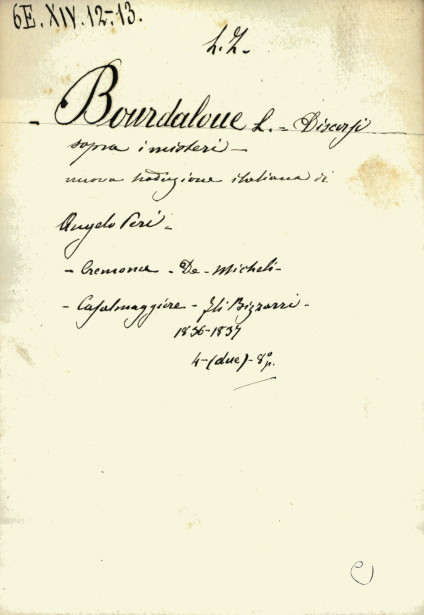 6E.XIV.12-13.
L. L.
- Bourdaloue L. = Discorsi
sopra i misteri -
nuova traduzione italiana di
Angelo Peri -
- Cremona - De-Micheli -
- Casalmaggiore - fli Bizzarri -
1836-1837
4-(due)-8°p.